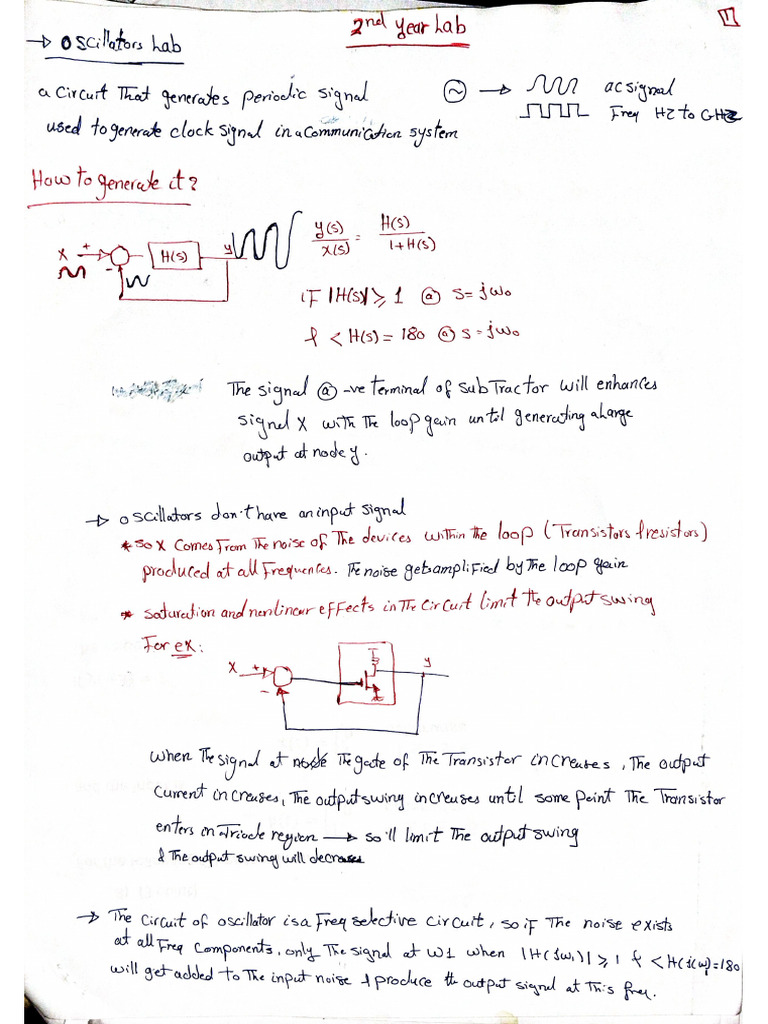 2nd Year Lab
→ Oscillators Lab
a circuit That generates periodic signal
ac signal
used to generate clock signal in a Communication system
Freq HZ to GHZ
How to generate it?
X + - H(s) y
y(s)/x(s) = H(s)/1+H(s)
if |H(s)| ≥ 1 @ s=jω0
& < H(s) = 180 @ s=jω0
The signal @ -ve terminal of subTractor will enhances
signal X with the loop gain until generating a large
output at node y.
→ oscillators don't have an input signal
* so X comes From The noise of The devices within the loop (Transistors & resistors)
produced at all Frequences. The noise gets amplified by The loop gain
* saturation and nonlinear effects in The circuit limit the output swing
For ex:
X + - y
when The signal at node The gate of The Transistor increases, The output
Current increases, The output swing increases until some point The Transistor
enters in Triode region → so 'll limit The output swing
& The output swing will decreases
→ The circuit of oscillator is a Freq selective circuit, so if The noise exists
at all Freq components, only The signal at W1 when |H(jω1)| ≥ 1 & <H(j(ω)=180
will get added to The input noise & produce th output signal at This freq.